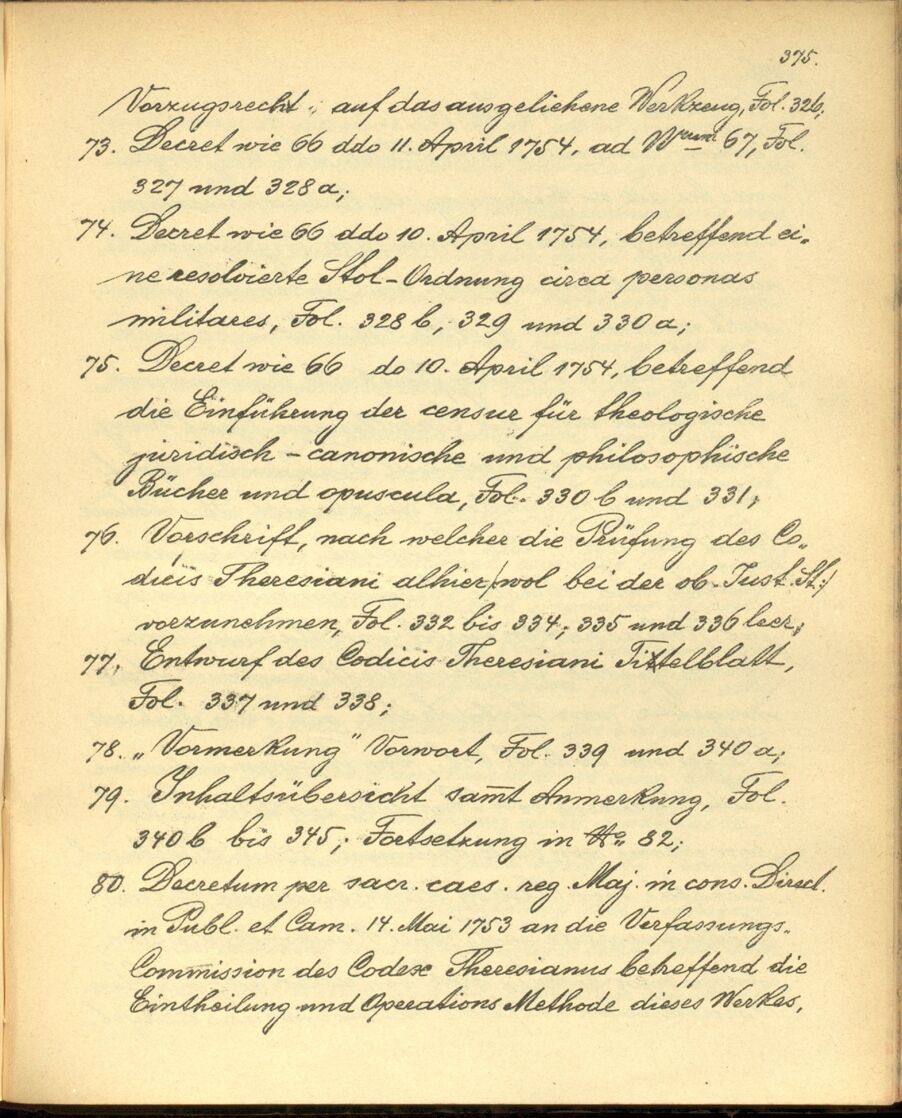 375.
Vorzugsrecht " auf das ausgeliehene Werkzeug, Fol. 326;
73. Decret wie 66 ddo 11. April 1754, ad Nrum 67, Fol.
327 und 328 a;
74. Decret wie 66 ddo 10. April 1754, betreffend ei„
ne resolvierte Stol-Ordnung circa personas
militares, Fol. 328 b, 329 und 330 a;
75. Decret wie 66 do 10. April 1754, betreffend
die Einführung der censur für theologische
juridisch - canonische und philosophische
Bücher und opuscula, Fol. 330 b und 331;
76. Vorschrift, nach welcher die Prüfung des Co„
dicis Theresiani alhier/wol bei der ob. Just. St:/
vorzunehmen, Fol. 332 bis 334; 335 und 336 leer;
77. Entwurf des Codicis Theresiani Tittelblatt,
Fol. 337 und 338;
78. „Vormerkung" Vorwort, Fol. 339 und 340 a;
79. Inhaltsübersicht sam̅t Anmerkung, Fol.
340 b bis 345; Fortsetzung in No 82;
80. Decretum per sacr. caes. reg. Maj. in cons. Direct.
in Publ. et Cam. 14. Mai 1753 an die Verfassungs„
Commission des Codex Theresianus betreffend die
Eintheilung und Operations Methode dieses Werkes,